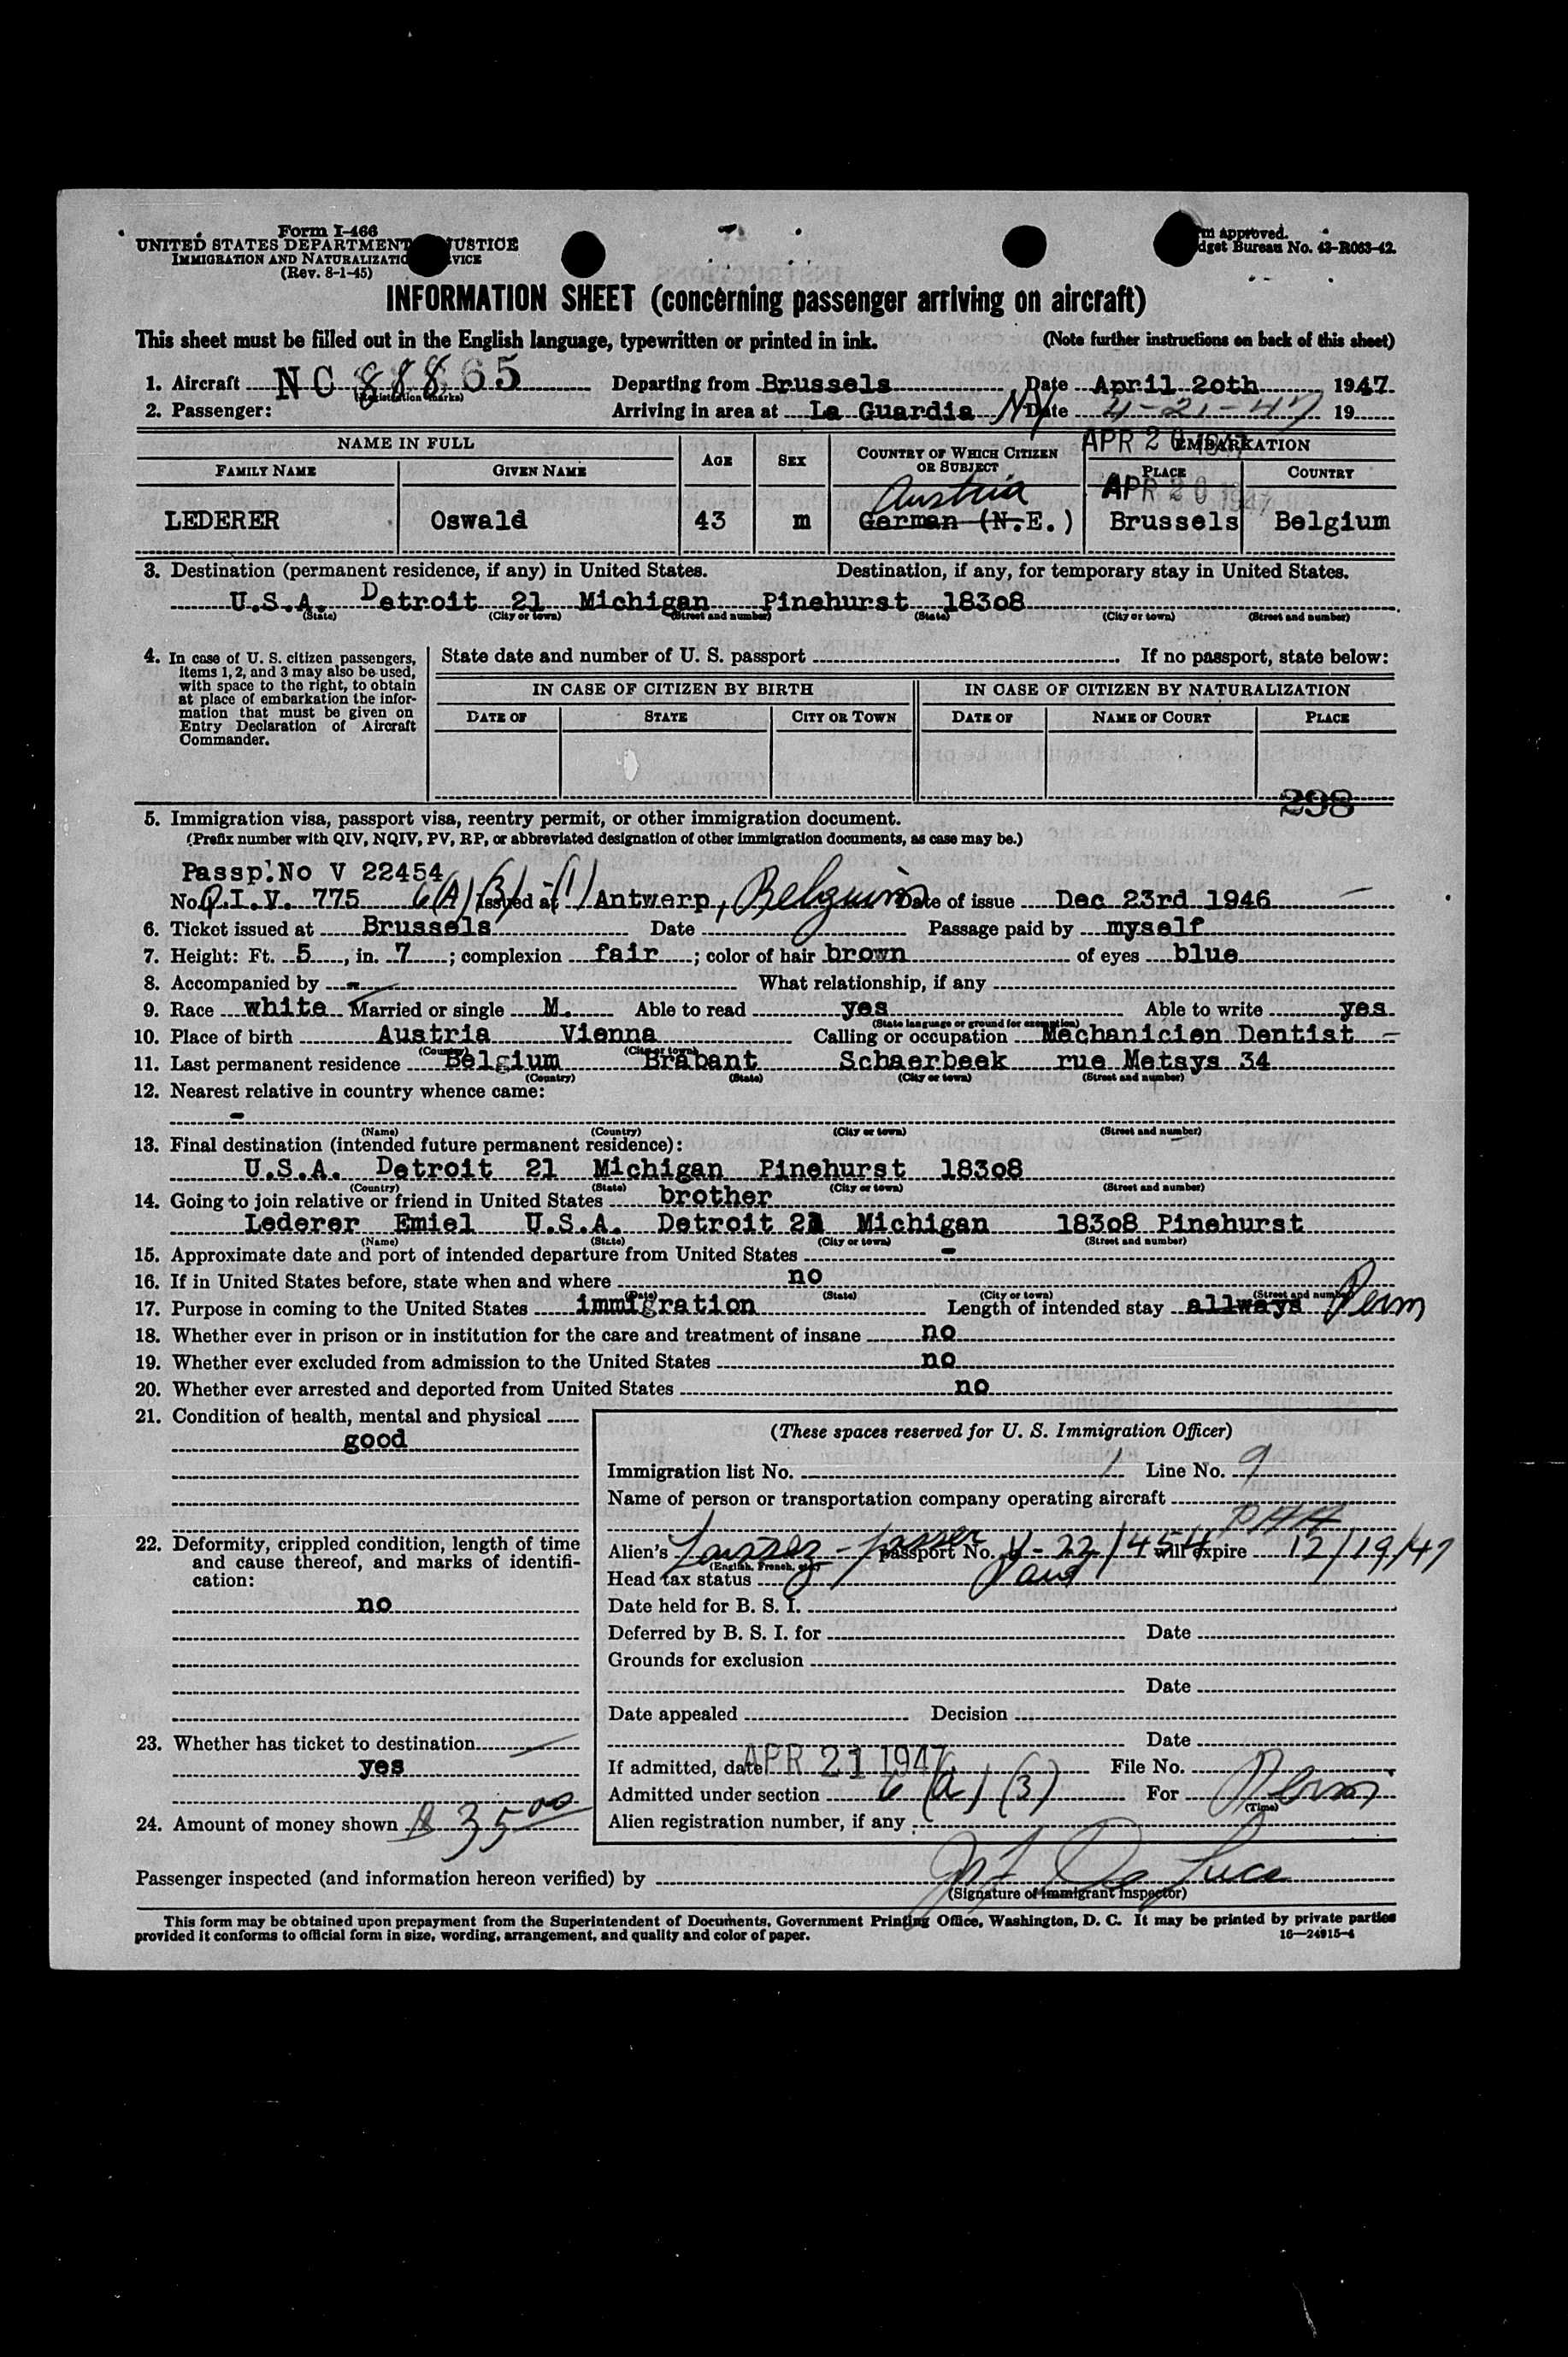 Form I-466
UNITED STATES DEPARTMENT JUSTICE
IMMIGRATION AND NATURALIZATIO VICE
(Rev. 8-1-45)
m approved.
dget Bureau No. 43-R063-42.
INFORMATION SHEET (concerning passenger arriving on aircraft)
This sheet must be filled out in the English language, typewritten or printed in ink. (Note further instructions on back of this sheet)
1. Aircraft NC 88865 Departing from Brussels Date April 2oth 1947
(Registration marks)
2. Passenger: Arriving in area at La Guardia NY Date 4-21-47 19
APR 20 1947
NAME IN FULL AGE SEX COUNTRY OF WHICH CITIZEN OR SUBJECT EMBARKATION
FAMILY NAME GIVEN NAME PLACE COUNTRY
Austria APR 20 1947
LEDERER Oswald 43 m German (N.E.) Brussels Belgium
3. Destination (permanent residence, if any) in United States. Destination, if any, for temporary stay in United States.
U.S.A. Detroit 21 Michigan Pinehurst 183o8
(State) (City or town) (Street and number) (State) (City or town) (Street and number)
4. In case of U. S. citizen passengers, items 1, 2, and 3 may also be used, with space to the right, to obtain at place of embarkation the information that must be given on Entry Declaration of Aircraft Commander.
State date and number of U. S. passport If no passport, state below:
IN CASE OF CITIZEN BY BIRTH IN CASE OF CITIZEN BY NATURALIZATION
DATE OF STATE CITY OR TOWN DATE OF NAME OF COURT PLACE
298
5. Immigration visa, passport visa, reentry permit, or other immigration document.
(Prefix number with QIV, NQIV, PV, RP, or abbreviated designation of other immigration documents, as case may be.)
Passp.No V 22454
No. Q.I.V. 775 6(A)(3)-(1) Issued at Antwerp, Belguim Date of issue Dec 23rd 1946
6. Ticket issued at Brussels Date Passage paid by myself
7. Height: Ft. 5, in. 7; complexion fair; color of hair brown of eyes blue
8. Accompanied by - What relationship, if any
9. Race white Married or single M. Able to read yes Able to write yes
(State language or ground for exemption)
10. Place of birth Austria Vienna Calling or occupation Mechanicien Dentist
(Country) (City or town)
11. Last permanent residence Belgium Brabant Schaerbeek rue Metsys 34
(Country) (State) (City or town) (Street and number)
12. Nearest relative in country whence came:
-
(Name) (Country) (City or town) (Street and number)
13. Final destination (intended future permanent residence):
U.S.A. Detroit 21 Michigan Pinehurst 183o8
(Country) (State) (City or town) (Street and number)
14. Going to join relative or friend in United States brother
Lederer Emiel U.S.A. Detroit 21 Michigan 183o8 Pinehurst
(Name) (State) (City or town) (Street and number)
15. Approximate date and port of intended departure from United States -
16. If in United States before, state when and where no
(Date) (State) (City or town) (Street and number)
17. Purpose in coming to the United States immigration Length of intended stay allways Perm
18. Whether ever in prison or in institution for the care and treatment of insane no
19. Whether ever excluded from admission to the United States no
20. Whether ever arrested and deported from United States no
21. Condition of health, mental and physical
good
22. Deformity, crippled condition, length of time and cause thereof, and marks of identification:
no
23. Whether has ticket to destination
yes
24. Amount of money shown $ 35.00
(These spaces reserved for U. S. Immigration Officer)
Immigration list No. 1 Line No. 9
Name of person or transportation company operating aircraft
PAA
Alien's Laissez-passer passport No. V-22/454 will expire 12/19/47
(English, French, etc.)
Head tax status
Date held for B. S. I.
Deferred by B. S. I. for Date
Grounds for exclusion
Date
Date appealed Decision
Date
If admitted, date APR 21 1947 File No.
Admitted under section 6(a)(3) For Perm
(Time)
Alien registration number, if any
Passenger inspected (and information hereon verified) by De Luca
(Signature of Immigrant Inspector)
This form may be obtained upon prepayment from the Superintendent of Documents, Government Printing Office, Washington, D. C. It may be printed by private parties
provided it conforms to official form in size, wording, arrangement, and quality and color of paper. 16—24915-4